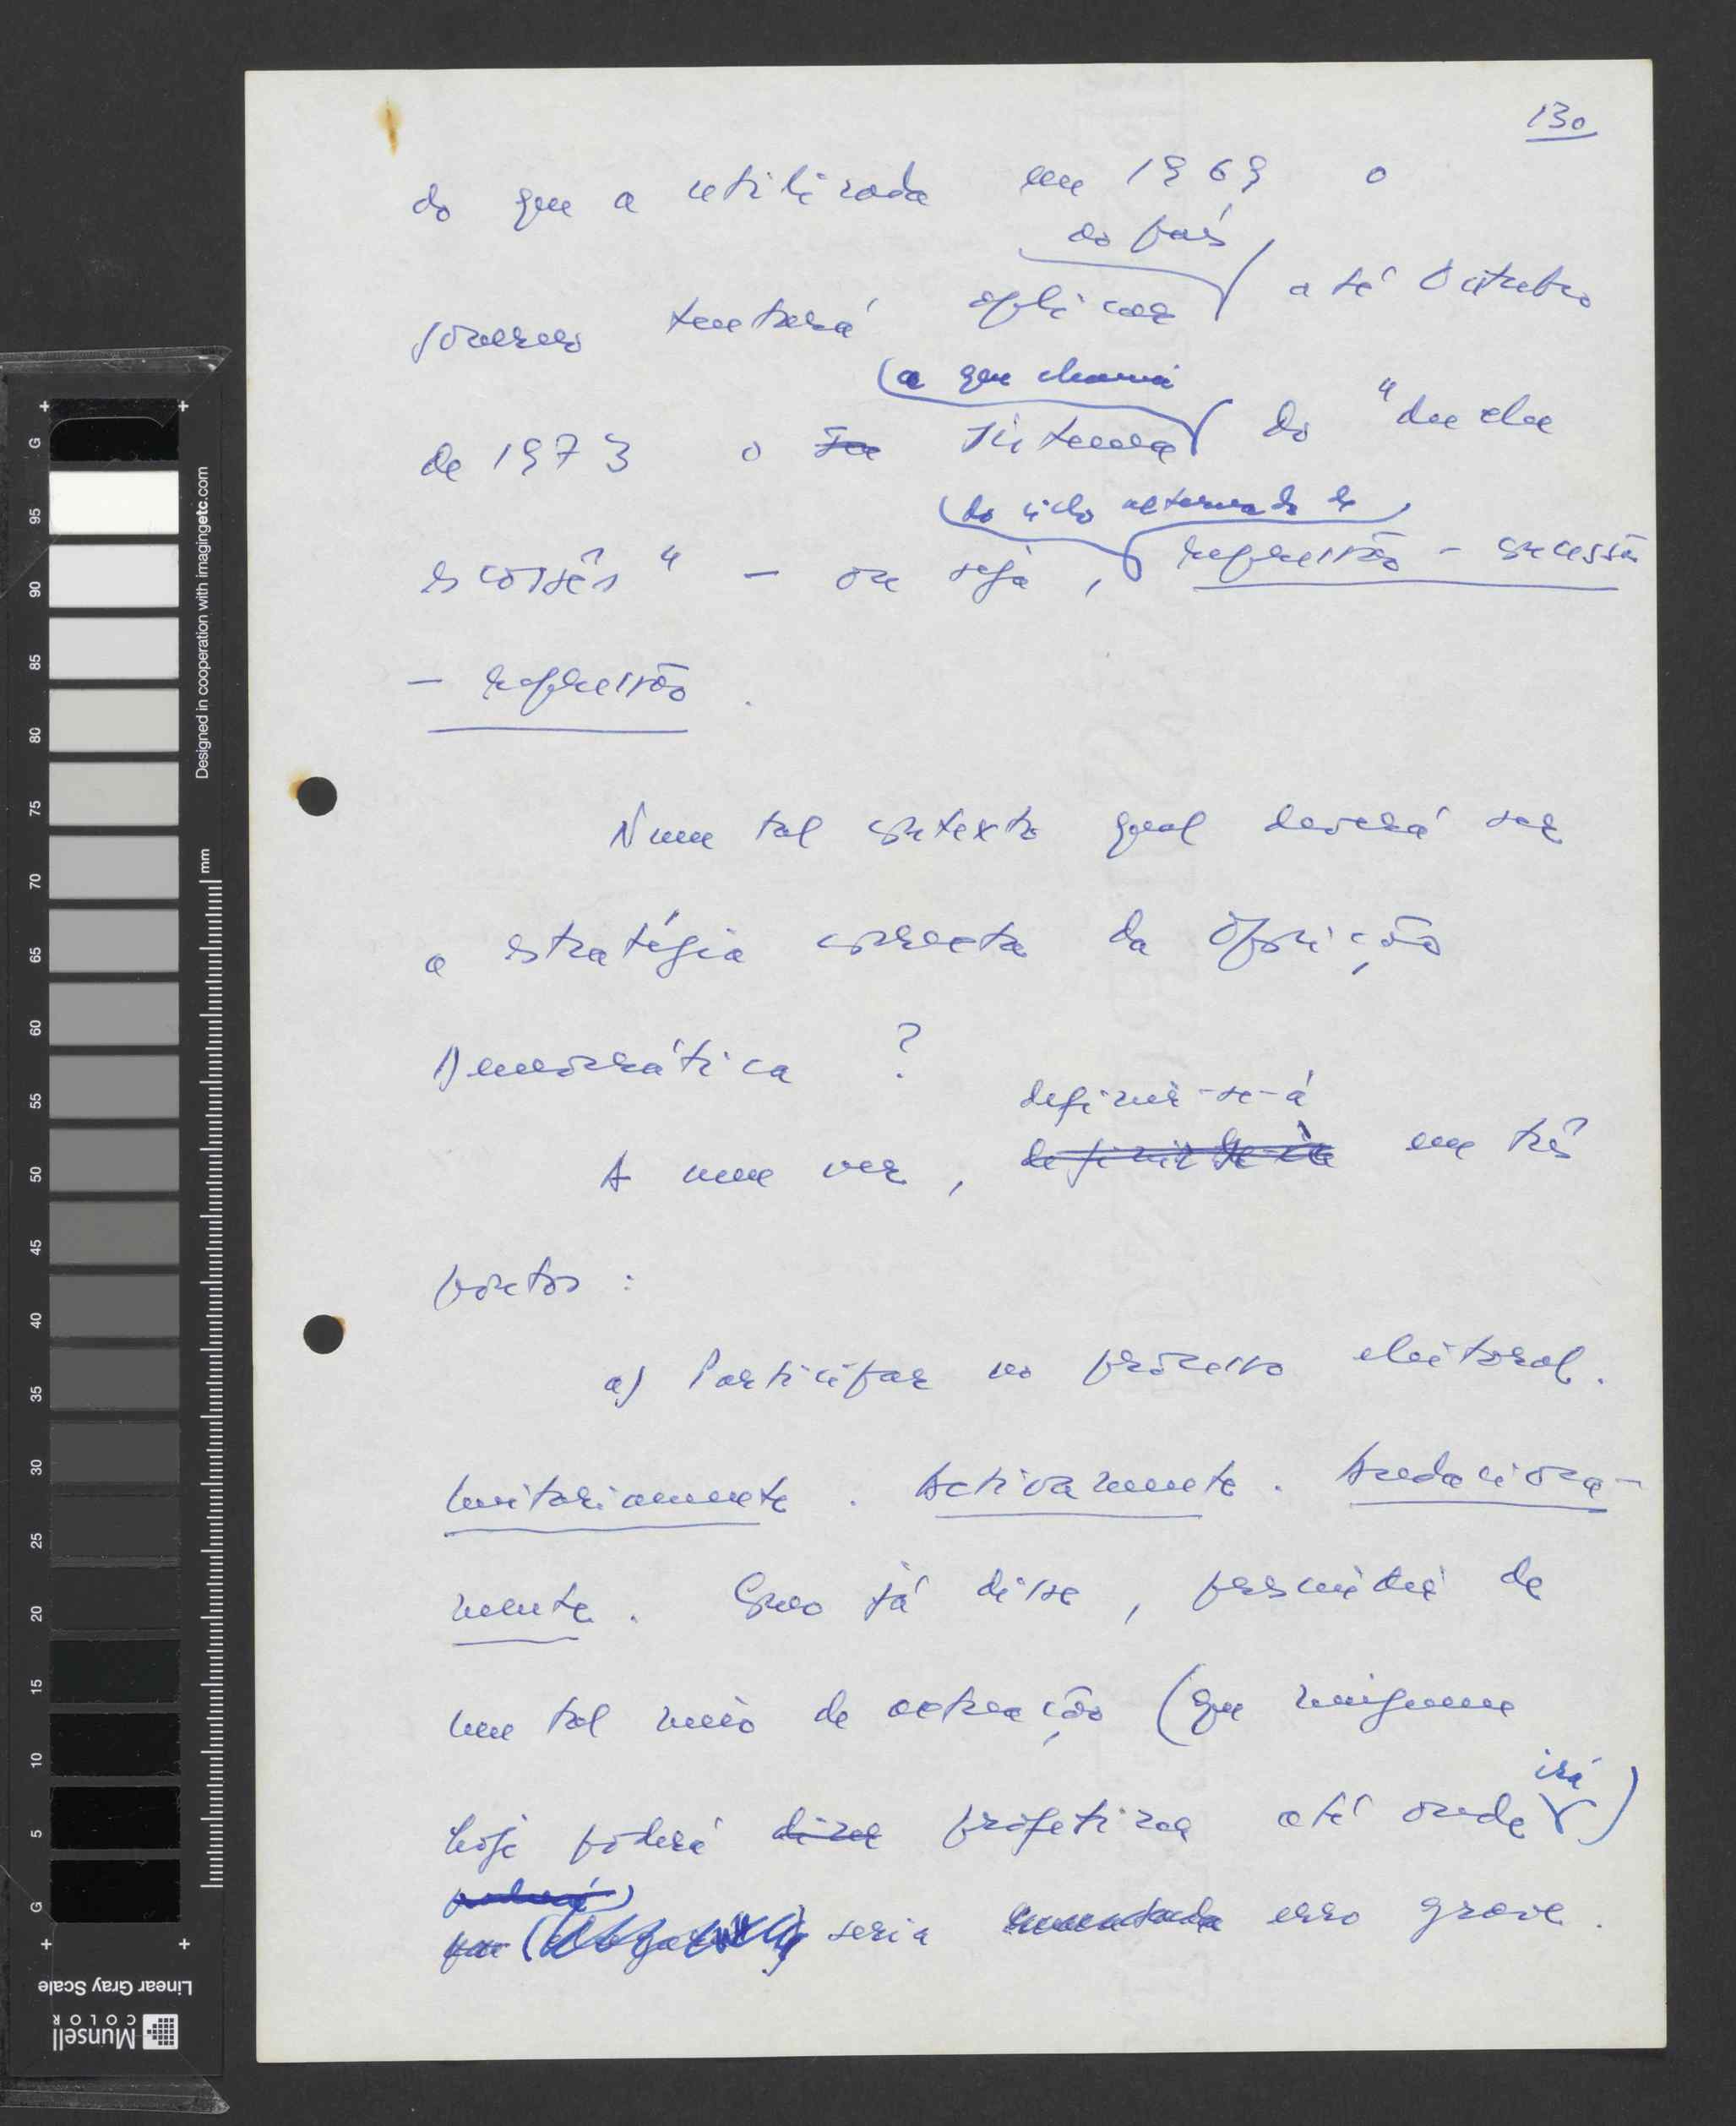 130
do que a utilizada em 1969 o
ao país
governo tentará aplicar até Outubro
(a que chamei
de 1973 o sistema do "duche
do ciclo alternado de
escossês" — ou seja, repressão - sucessão
— repressão.
Num tal contexto qual deverá ser
a estratégia correcta da Oposição
Democrática ?
definir-se-á
A meu ver, em três
pontos :
a) Participar no processo eleitoral.
Unitariamente. Activamente. Audaciosa-
mente. Como já disse, prescindir de
um tal meio de actuação (que ninguem
irá
hoje poderá dizer profetizar até onde )
poderá
seria erro grave.
G 95 90 85 80 75 70 65 60 55 50 45 40 35 30 25 20 15 10 5 G
mm
Designed in cooperation with imagingetc.com
Linear Gray Scale
Munsell
COLOR